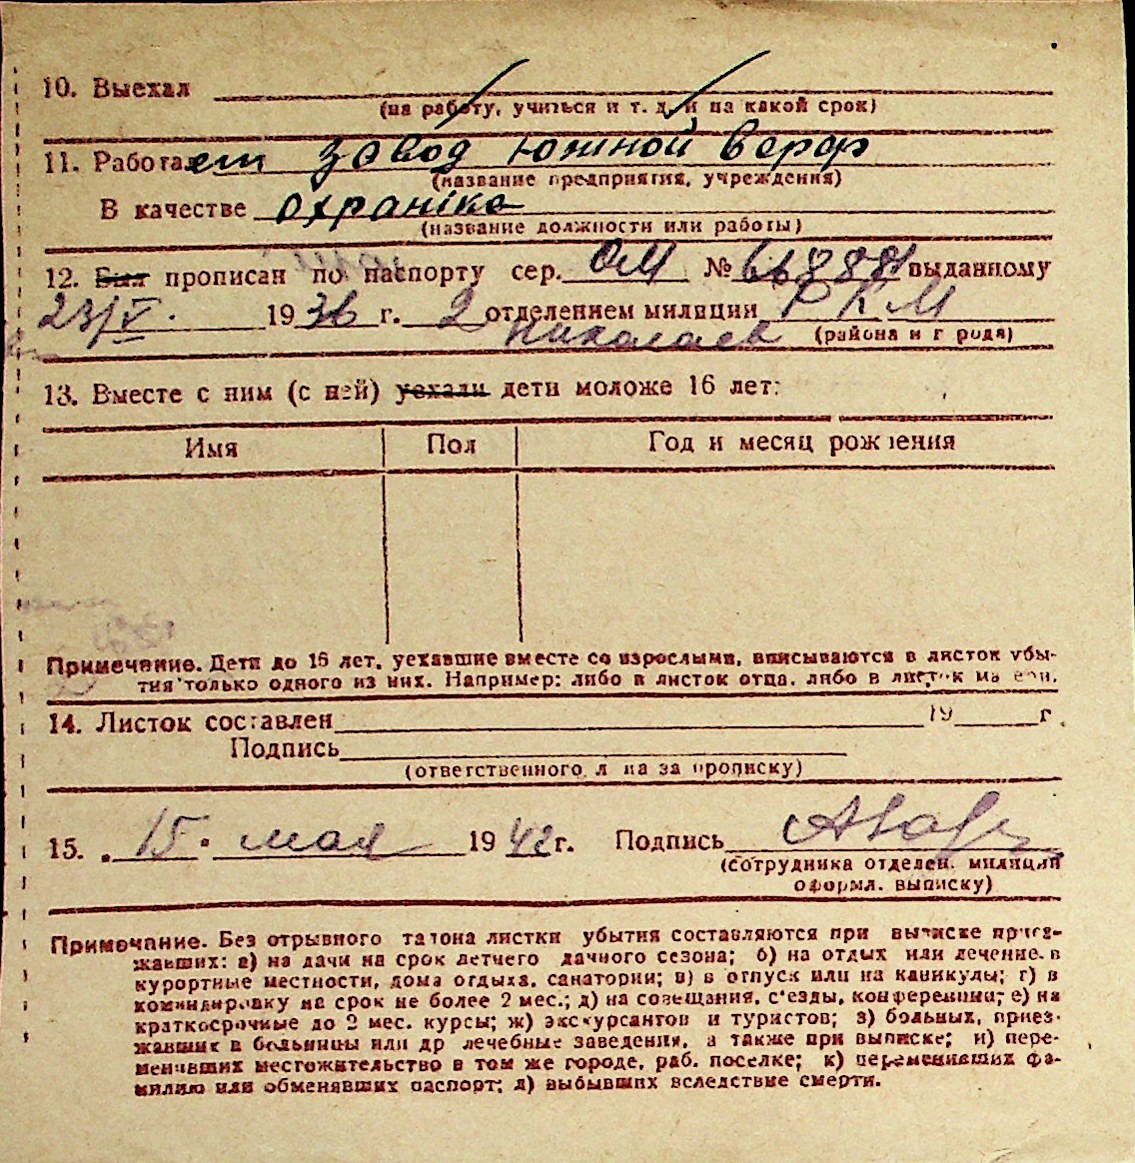 10. Выехал
(на работу, учиться и т. д. и на какой срок)
11. Работает завод Южной верф
(название предприятия, учреждения)
В качестве охраніка
(название должности или работы)
12. Был прописан по паспорту сер. ОМ № выданному
23/V. 1936 г. 2 отделением милиции Р К М
Николаев (района и г рода)
13. Вместе с ним (с ней) уехали дети моложе 16 лет:
Имя Пол Год и месяц рождения
Примечание. Дети до 16 лет, уехавшие вместе со взрослыми, вписываются в листок убы-
тия только одного из них. Например: либо в листок отца, либо в листок ма ери.
14. Листок составлен 19 г.
Подпись
(ответственного л ца за прописку)
15. 15 мая 1942 г. Подпись
(сотрудника отделен. милиции
оформл. выписку)
Примечание. Без отрывного талона листки убытия составляются при выписке приез-
жавших: а) на дачи на срок летнего дачного сезона; б) на отдых или лечение в
курортные местности, дома отдыха, санатории; в) в отпуск или на каникулы; г) в
командировку на срок не более 2 мес.; д) на совещания, с'езды, конференции; е) на
краткосрочные до 2 мес. курсы; ж) экскурсантов и туристов; з) больных, приез-
жавших в больницы или др лечебные заведения, а также при выписке; и) пере-
менивших местожительство в том же городе, раб. поселке; к) переменивших фа-
милию или обменявших паспорт; л) выбывших вследствие смерти.